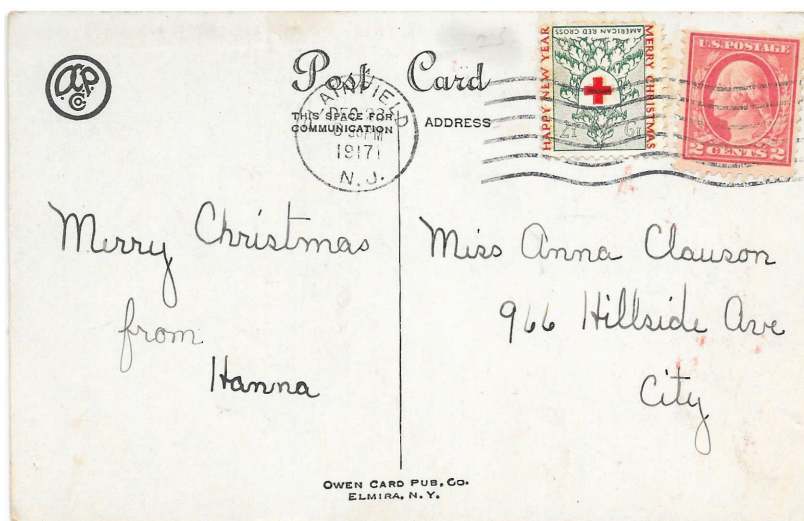 OCP Co.
Post Card
THIS SPACE FOR
COMMUNICATION
ADDRESS
AINFIELD
DEC 22
PM
1917
N.J.
HAPPY NEW YEAR
AMERICAN RED CROSS
MERRY CHRISTMAS
19 17
U.S. POSTAGE
2 CENTS 2
Merry Christmas
from
Hanna
Miss Anna Clauson
966 Hillside Ave
City
OWEN CARD PUB. CO.
ELMIRA, N.Y.